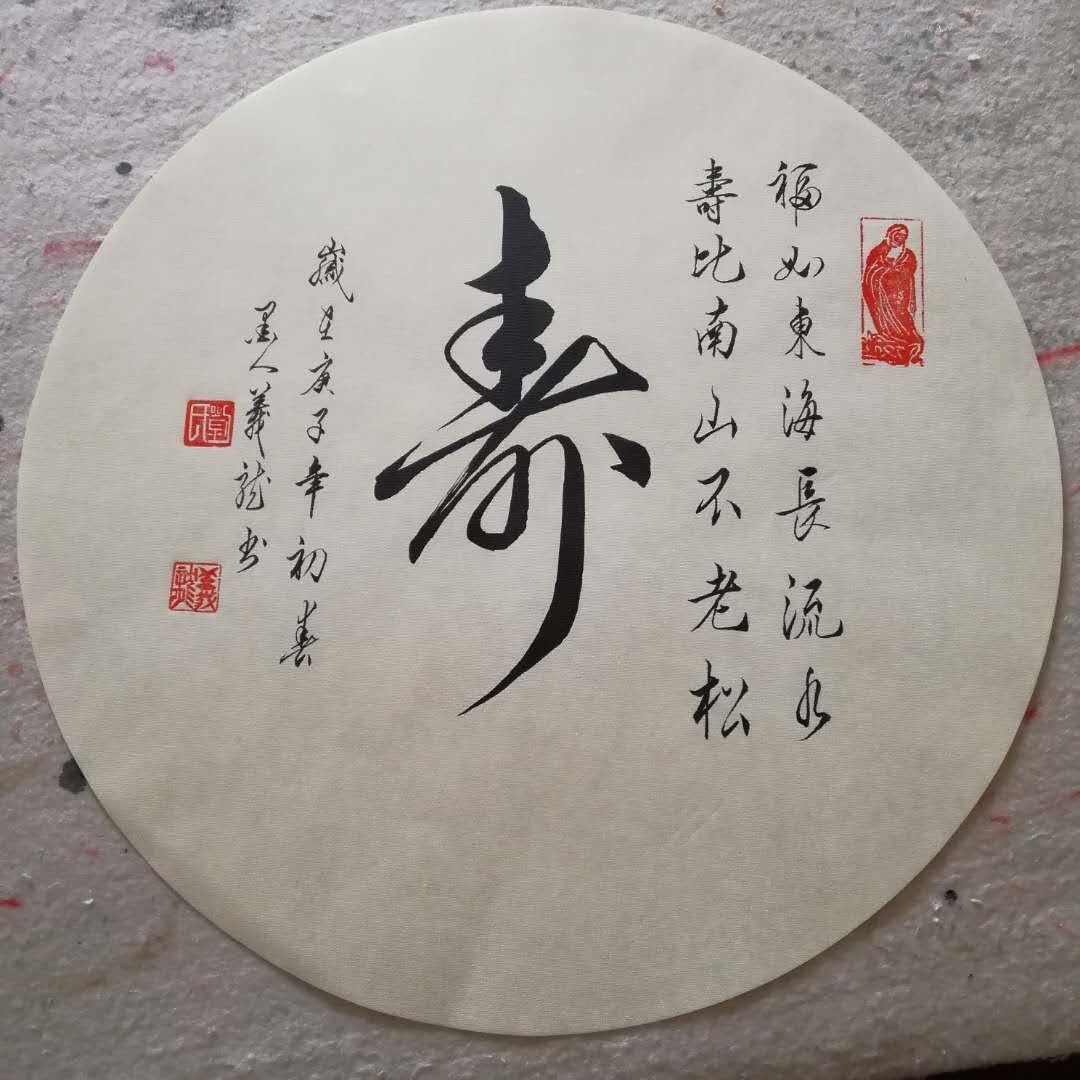 福如東海長流水
壽比南山不老松
壽
歲在庚子年初春
墨人義龍书